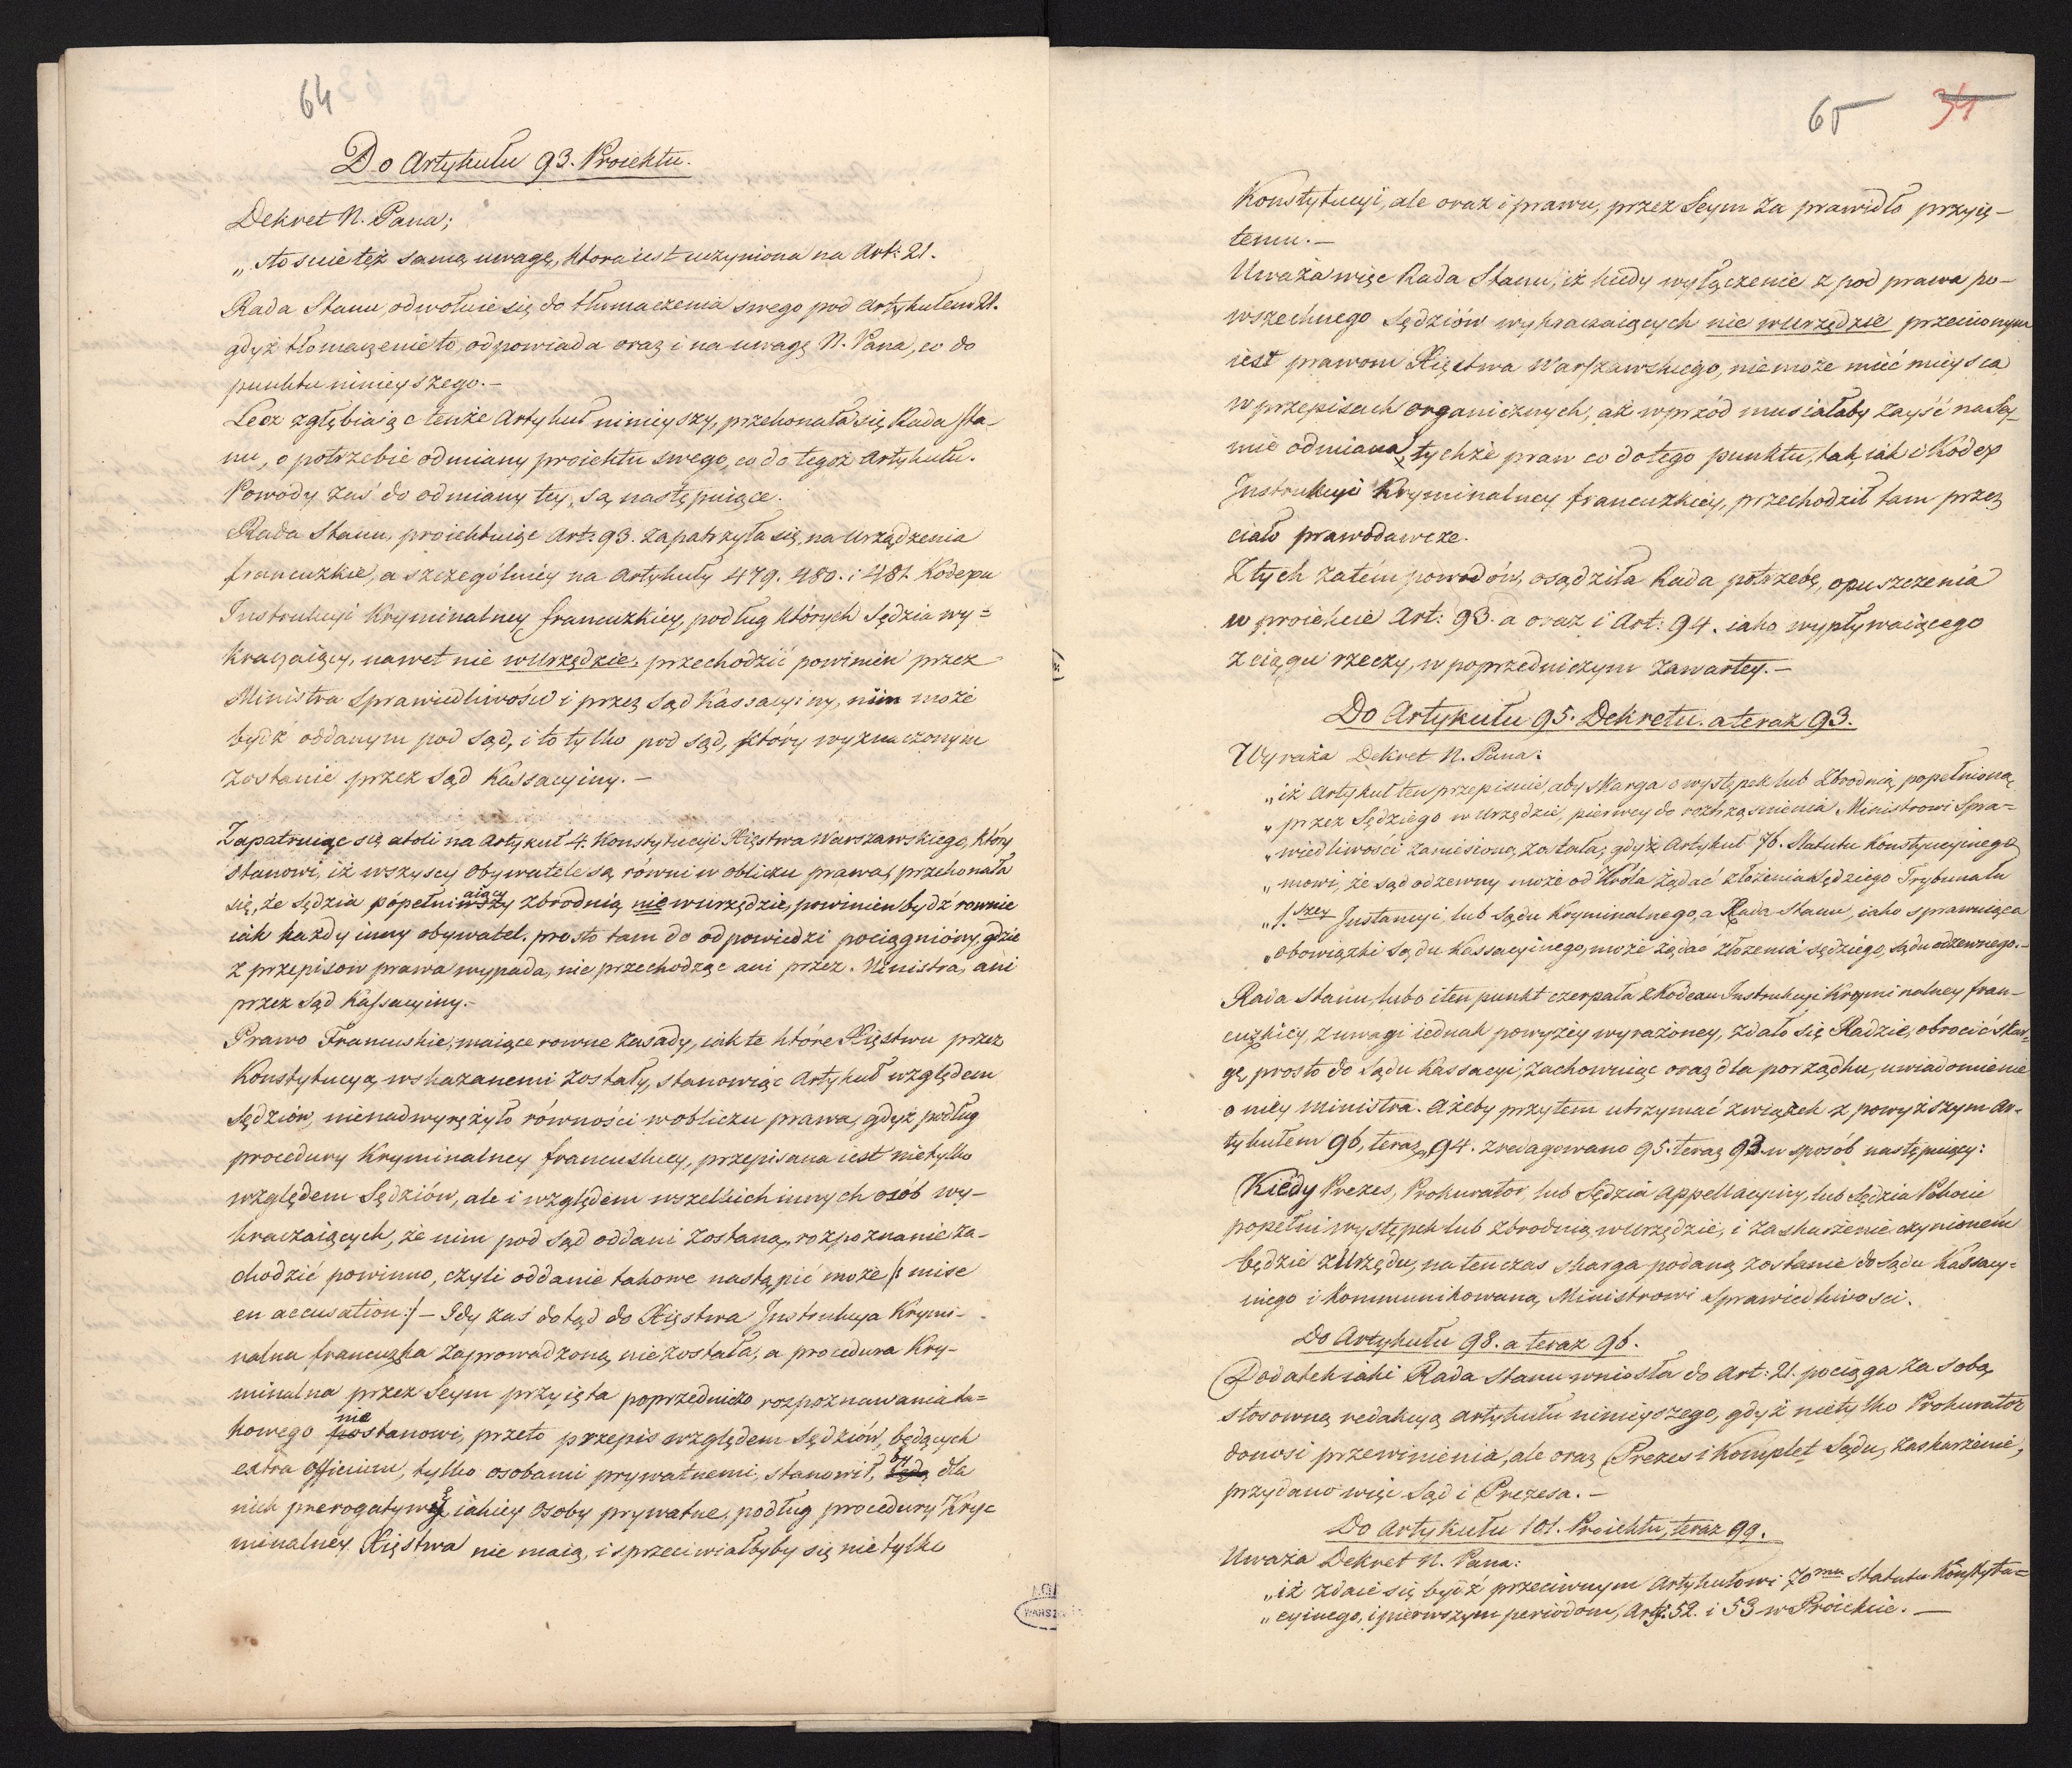 64
Do Artykułu 93. Proiektu.
Dekret N. Pana;
„stosuie też samą uwagę, ktora iest uczyniona na Art: 21.
Rada Stanu, odwołuie się do tłumaczenia swego pod Artykułem 21.
gdyż tłomaczenie to, odpowiada oraz i na uwagę N. Pana, co do
punktu ninieyszego.—
Lecz zgłębiaiąc tenże Artykuł ninieyszy, przekonała się Rada Sta-
nu, o potrzebie odmiany proiektu swego, co do tegoż Artykułu.
Powody zaś do odmiany tey, są następuiące.
Rada Stanu, proiektuiąc Art: 93. zapatrzyła się, na urządzenia
francuzkie, a szczególniey na Artykuły 479. 480. i 481. Kodexu
Instrukcyi Kryminalney francuzkiey, podług których Sędzia wy-
kraczaiący, nawet nie w Urzędzie, przechodzić powinien przez
Ministra Sprawiedliwości i przez Sąd Kassacyiny, nim może
bydź oddanym pod Sąd, i to tylko pod Sąd, który wyznaczonym
zostanie przez Sąd Kassacyiny.—
Zapatruiąc się atoli na Artykuł 4. Konstytucyi Xięstwa Warszawskiego, który
stanowi, iż wszyscy Obywatele są równi w obliczu prawa, przekonała
się, że Sędzia popełniwszy aiący zbrodnią nie w urzędzie, powinien bydź rownie
iak każdy inny obywatel, prosto tam do odpowiedzi pociągniony, gdzie
z przepisow prawa wypada, nie przechodząc ani przez Ministra, ani
przez Sąd Kassacyiny.—
Prawo Francuskie, maiące rowne zasady, iak te które Xięstwu przez
Konstytucyą wskazanemi zostały, stanowiąc Artykuł względem
Sędziów, nienadwyrężyło równości w obliczu prawa, gdyż podług
procedury Kryminalney francuskiey, przepisana iest nietylko
względem Sędziów, ale i względem wszelkich innych osób wy-
kraczaiących, że nim pod Sąd oddani zostaną, rozpoznanie za-
chodzić powinno, czyli oddanie takowe nastąpić może /: mise
en accusation :/ — Gdy zaś dotąd do Xięstwa Instrukcya Krymi-
nalna francuzka zaprowadzoną niezostała, a procedura Kry-
minalna przez Seym przyięta poprzedniczo rozpoznawania ta-
kowego postanowi nie, przeto przepis względem Sędziów, będących
extra Officium, tylko osobami prywatnemi, stanowił by dla
nich prerogatywę iakiey osoby prywatne, podług procedury Kry-
minalney Xięstwa nie maią, i sprzeciwiałby się nie tylko
65 34
Konstytucyi, ale oraz i prawu, przez Seym za prawidło przyię-
temu.—
Uważa więc Rada Stanu, iż kiedy wyłączenie z pod prawa po-
wszechnego Sędziów wykraczaiących nie w urzędzie przeciwnym
iest prawom Xięstwa Warszawskiego, nie może mieć mieysca
w przepisach organicznych, aż wprzód musiałaby zayść na Sey-
mie odmiana, tychże praw co do tego punktu, tak, iak i Kodex
Instrukcyi Kryminalney francuzkiey, przechodził tam przez
ciało prawodawcze.
Z tych zatém powodów, osądziła Rada potrzebę, opuszczenia
w proiekcie Art: 93. a oraz i Art: 94. iako wypływaiącego
z ciągu rzeczy, w poprzedniczym zawartey.—
Do Artykułu 95. Dekretu. a teraz 93.
Wyraża Dekret N. Pana:
„iż Artykuł ten przepisuie, aby skarga o występek lub Zbrodnią popełnioną
„przez Sędziego w urzędzie, pierwey do roztrząśnienia Ministrowi Spra-
„wiedliwości zaniesioną została, gdyż Artykuł 76. Statutu Konstytucyinego
„mowi, że sąd odzewny może od Króla żądać złożenia Sędziego Trybunału
„1.szey Instancyi, lub Sądu Kryminalnego, a Rada Stanu, iako sprawuiąca
„obowiązki Sądu Kassacyinego, może żądać złożenia sędziego, Sądu odzewnego.—
Rada Stanu, lubo i ten punkt czerpała z Kodexu Instrukcyi Kryminalney fran-
cuzkiey, z uwagi iednak powyżey wyrażoney, zdało się Radzie, obrocić skar-
gę, prosto do Sądu Kassacyi, zachowuiąc oraz dla porządku, uwiadomienie
o niey Ministra. Ażeby przytem utrzymać związek z powyższym Ar-
tykułem 96, teraz 94. zredagowano 95. teraz 93 w sposób następuiący:
Kiedy Prezes, Prokurator, lub Sędzia Appellacyiny, lub Sędzia Pokoiu
popełni występek lub zbrodnią w urzędzie, i zaskarżenie czynioném
będzie z Urzędu, na ten czas skarga podaną zostanie do Sądu Kassacy-
inego i kommunikowaną Ministrowi Sprawiedliwosci.
Do Artykułu 98. a teraz 96.
Dodatek iaki Rada Stanu wniosła do Art: 21. pociąga za sobą
stosowną redakcyą artykułu ninieyszego, gdyż nietylko Prokurator
donosi przewinienia, ale oraz Prezes i Komplet Sądu, zaskarżenie,
przydano więc Sąd i Prezesa.—
Do Artykułu 101. Proiektu, teraz 99.
Uważa Dekret N. Pana:
„iż zdaie się bydź przeciwnym Artykułowi 70mu Statutu Konstytu-
„cyinego, i pierwszym periodom, Art: 52. i 53 w Proiekcie.—